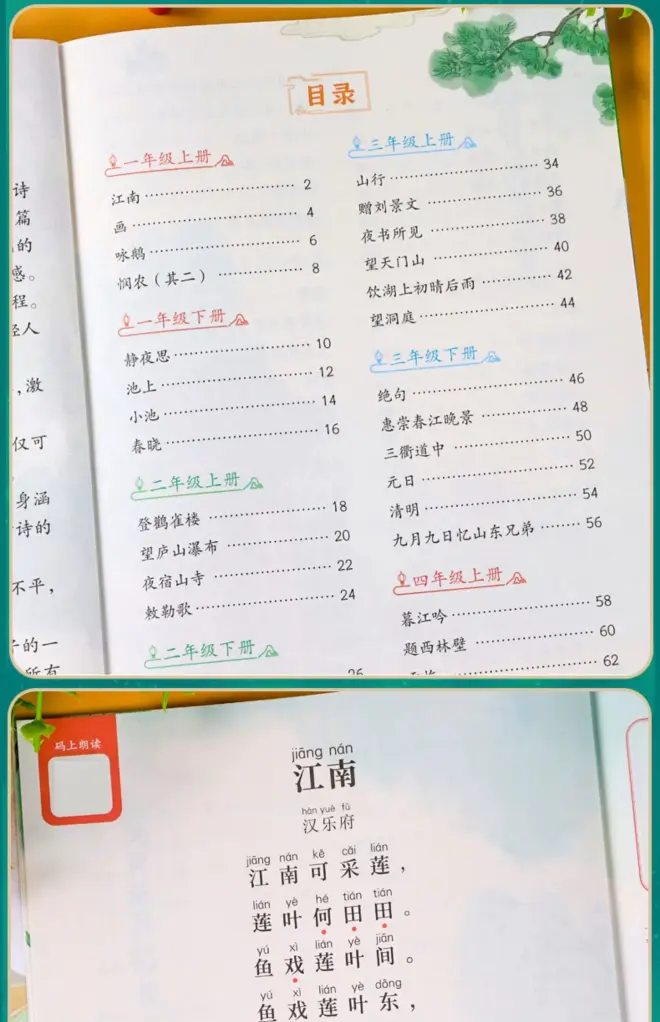 诗
篇
的
感。
程。
经人
,激
仅可
身涵
诗的
不平,
子的一
所有
目录
一年级上册
江南 2
画 4
咏鹅 6
悯农(其二) 8
一年级下册
静夜思 10
池上 12
小池 14
春晓 16
二年级上册
登鹳雀楼 18
望庐山瀑布 20
夜宿山寺 22
敕勒歌 24
二年级下册
26
三年级上册
山行 34
赠刘景文 36
夜书所见 38
望天门山 40
饮湖上初晴后雨 42
望洞庭 44
三年级下册
绝句 46
惠崇春江晚景 48
三衢道中 50
元日 52
清明 54
九月九日忆山东兄弟 56
四年级上册
暮江吟 58
题西林壁 60
62
码上朗读
jiāng nán
江南
hàn yuè fǔ
汉乐府
jiāng nán kě cǎi lián
江南可采莲,
lián yè hé tián tián
莲叶何田田。
yú xì lián yè jiān
鱼戏莲叶间。
yú xì lián yè dōng
鱼戏莲叶东,